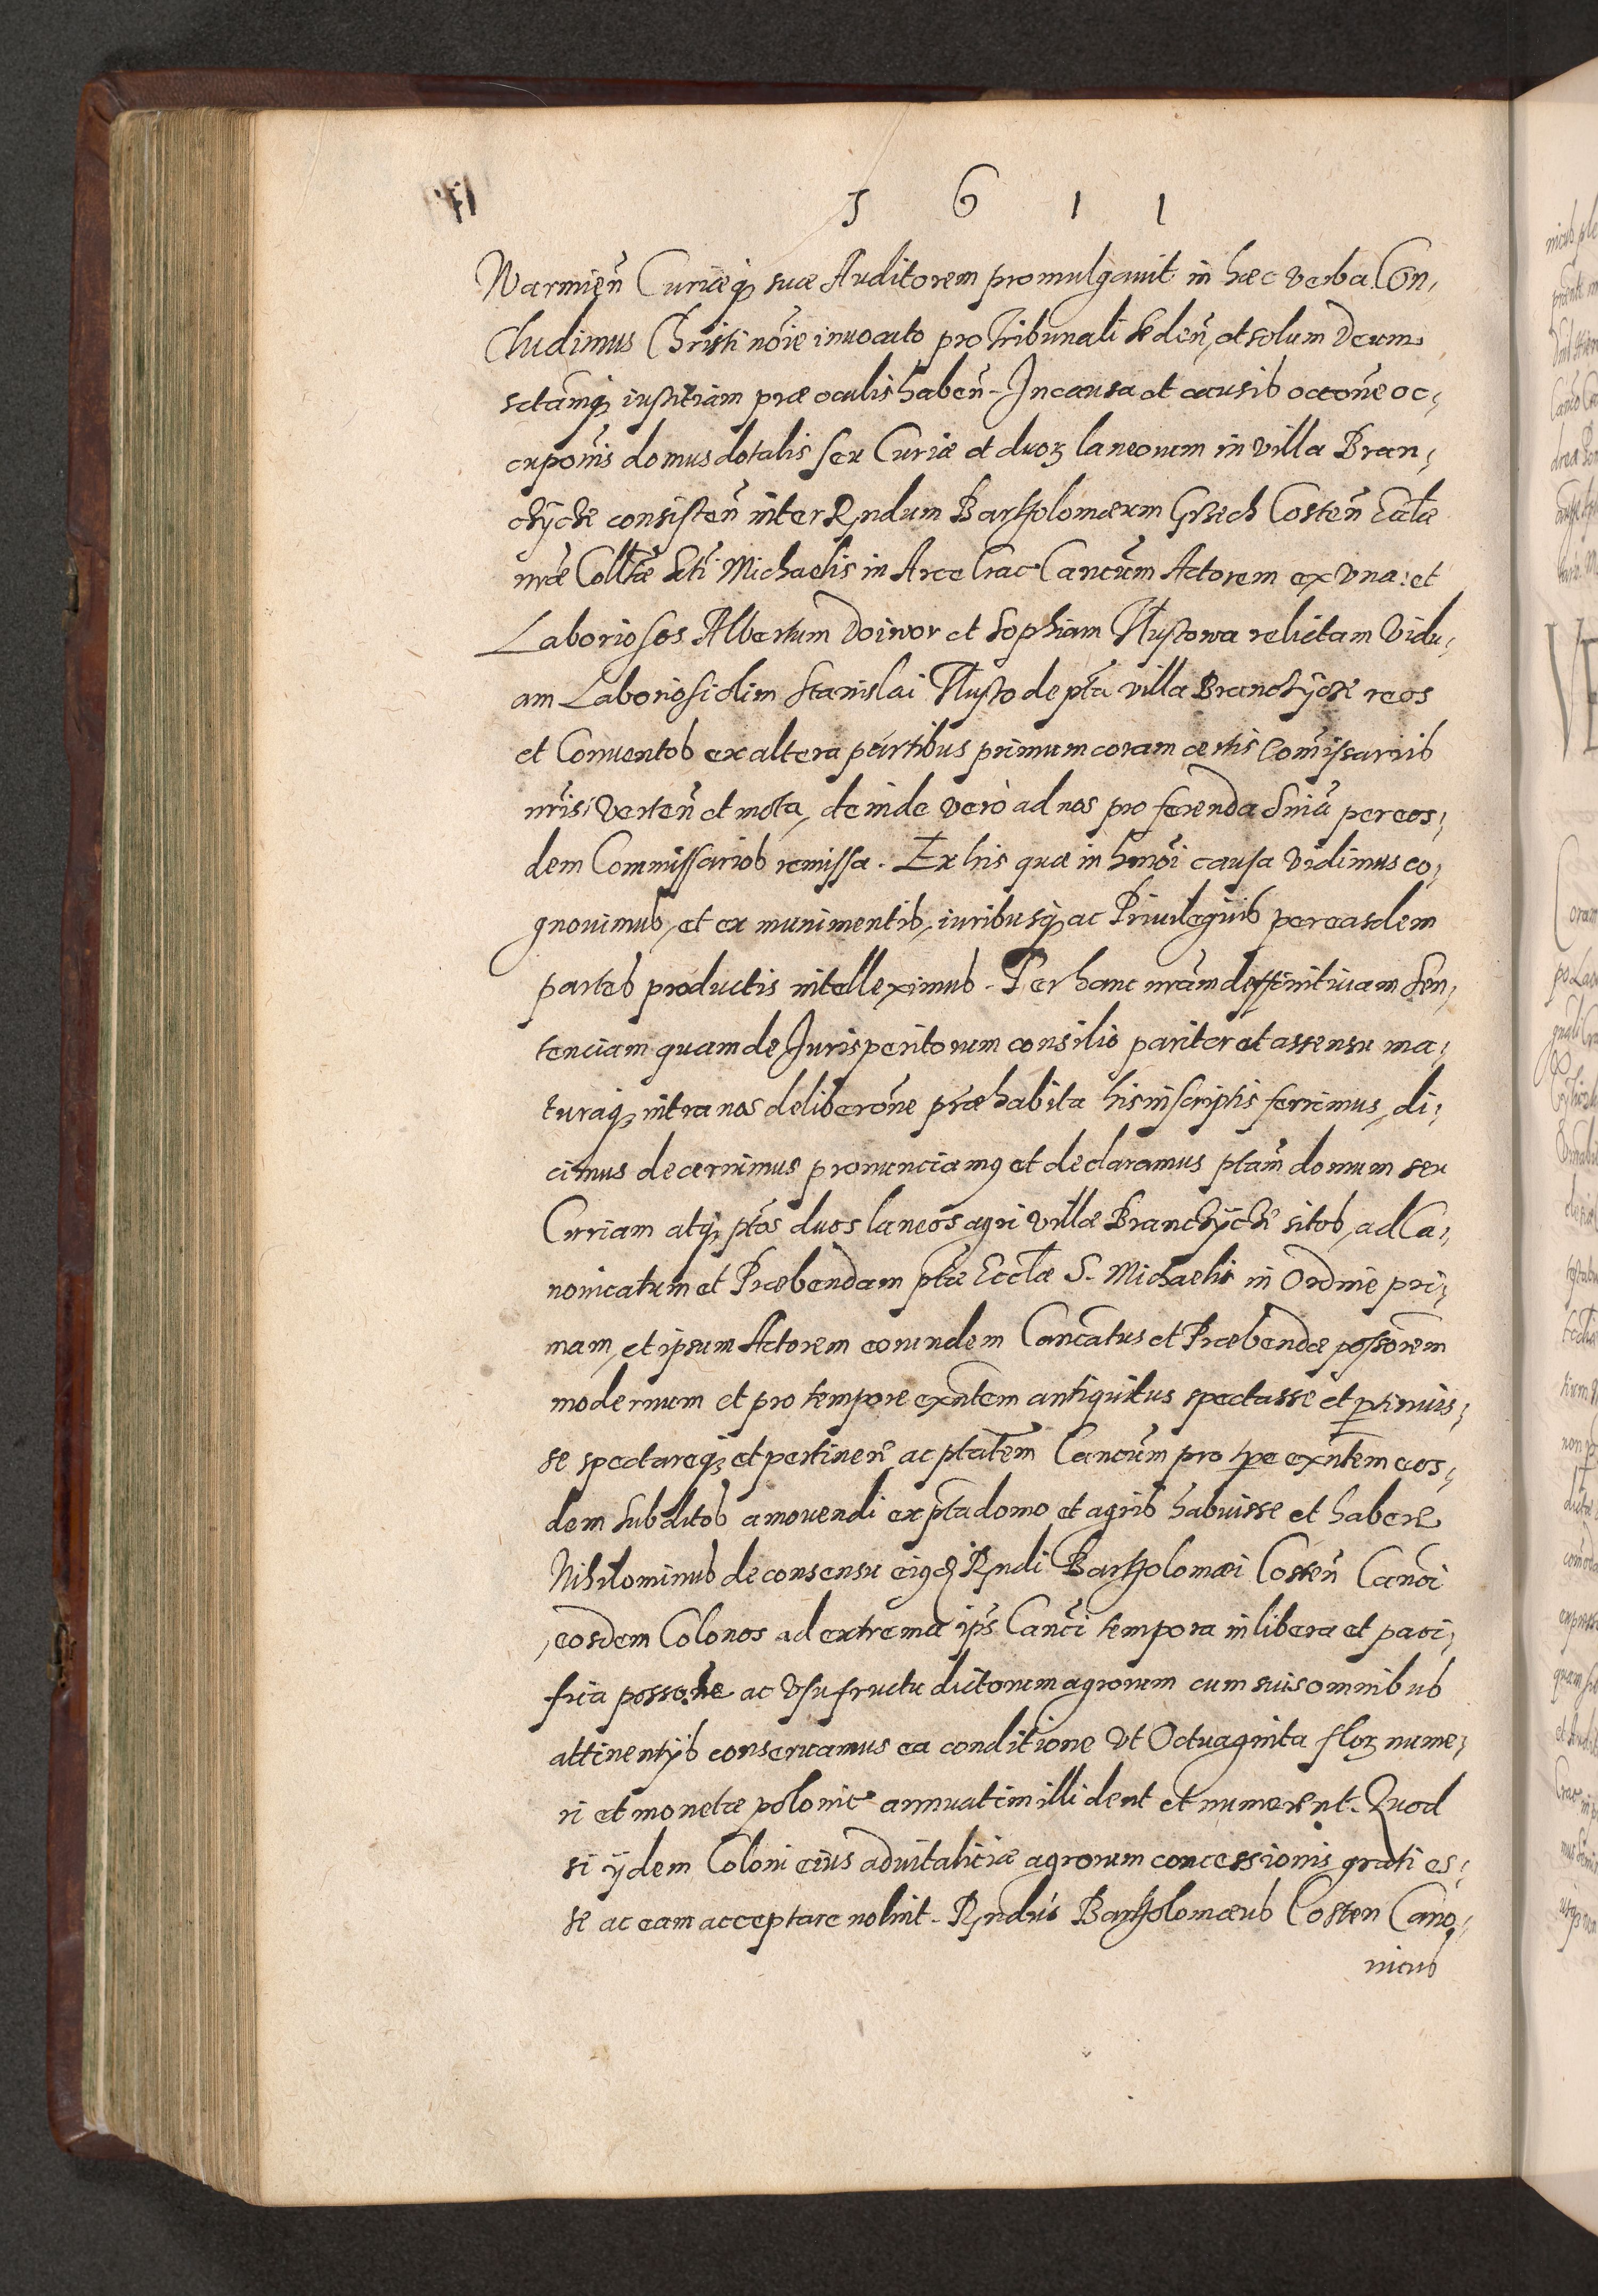 1 6 1 1
Warmieñ Curiæq; suæ Auditorem promulgauit in hæc verba. Con,
cludimus Christi nõie inuocato pro Tribunali sedeñ, et solum Deum
sctamq; iustitiam præ oculis habeñ - In causa et causis occõne oc,
cupõnis domus dotalis seu Curiæ et duoꝝ laneorum in villa Bran,
chÿche consisteñ inter Rndum Bartholomæum Grzech Costeñ Eccłæ
nræ Colltæ Scti Michaelis in Arce Crac Cancũm Actorem ex vna: et
Laboriosos Albertum Doiwor et Sophiam Tłustowa relictam Vidu,
am Laboriosi olim Stanislai Tłusto de pta villa Branchÿche reos
et Conuentos ex altera partibus primum coram certis Comissariis
nris, verteñ et mota, deinde verò ad nos pro ferenda Sniã per eos,
dem Commissarios remissa. Ex his quæ in hmõi causa vidimus co,
gnouimus, et ex munimentis, iuribusq; ac Priuilegiis per easdem
partes productis intelleximus - Per hanc nrãm deffinitiuam Sen,
tenciam quam de Jurisperitorum consilio pariter et assensu ma,
turaq; intra nos deliberõne præhabita his in scriptis ferimus, di,
cimus decernimus pronunciamꝯ et declaramus ptam domum seu
Curiam atq; ptos duos laneos agri villæ Branchÿche sitos, ad Ca,
nonicatum et Præbendam ptæ Eccłæ S. Michaelis in Ordine pri,
mam, et ipsum Actorem eorundem Cancatus et Præbendæ possorem
modernum et pro tempore exñtem antiquitus spectasse et ptinuis,
se spectareq; et pertinere ac ptãtem Cancũm pro tpe exñtem eos,
dem subditos amouendi ex pta domo et agris habuisse et habere
Nihilominus de consensu eiꝯd Rndi Bartholomæi Costeñ Canci
eosdem Colonos ad extrema ips Canci tempora in libera et paci,
fica possone ac vsufructu dictorum agrorum cum suis omnibus
attinentÿs conseruamus ea conditione vt Octuaginta floꝝ nume,
ri et monetæ polonic annuatim illi dent et numerent. Quod
si ÿdem Coloni eius aduitalitiæ agrorum concessionis grati es,
se ac eam acceptare nolint - Rndus Bartholomæus Costen Cano,
nicus